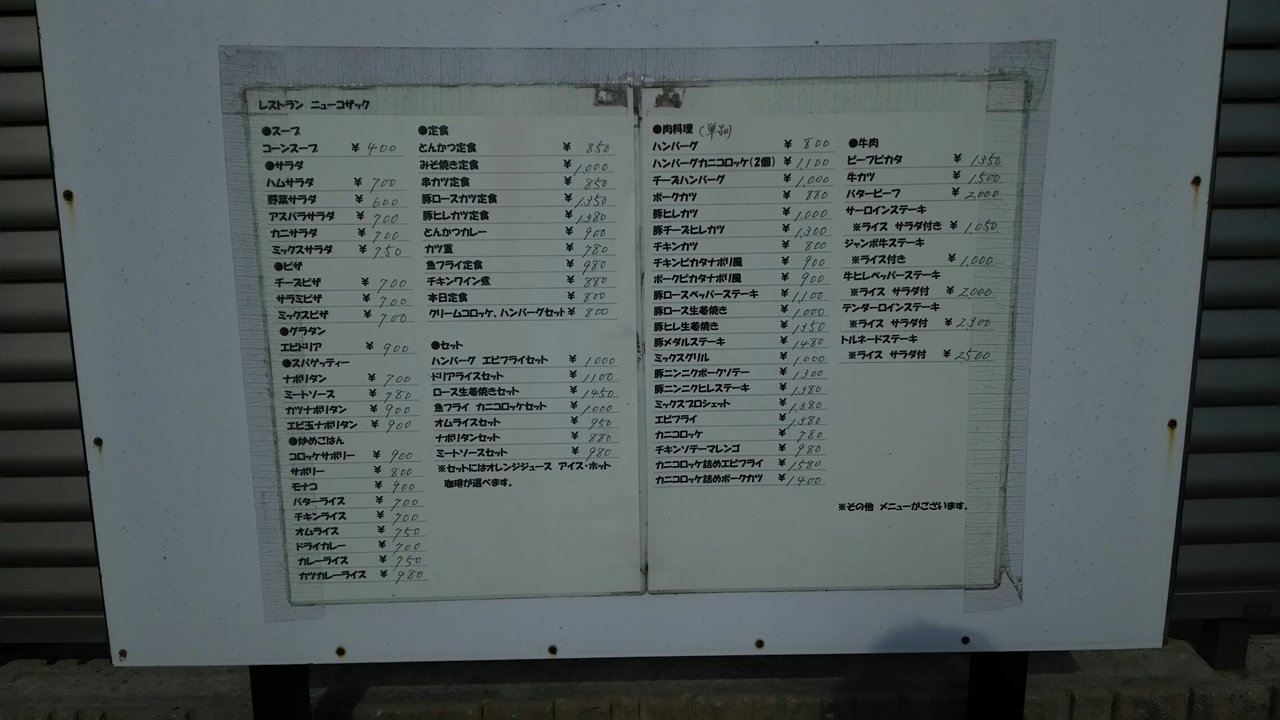 レストラン ニューコザック
●スープ
コーンスープ ¥ 400
●サラダ
ハムサラダ ¥ 700
野菜サラダ ¥ 600
アスパラサラダ ¥ 700
カニサラダ ¥ 700
ミックスサラダ ¥ 750
●ピザ
チーズピザ ¥ 700
サラミピザ ¥ 700
ミックスピザ ¥ 700
●グラタン
エビドリア ¥ 900
●スパゲッティー
ナポリタン ¥ 700
ミートソース ¥ 780
カツナポリタン ¥ 900
エビ玉ナポリタン ¥ 900
●炒めごはん
コロッケサボリー ¥ 900
サボリー ¥ 800
モナコ ¥ 900
バターライス ¥ 700
チキンライス ¥ 700
オムライス ¥ 750
ドライカレー ¥ 700
カレーライス ¥ 750
カツカレーライス ¥ 980
●定食
とんかつ定食 ¥ 850
みそ焼き定食 ¥ 1,000
串カツ定食 ¥ 850
豚ロースカツ定食 ¥ 1,350
豚ヒレカツ定食 ¥ 1,380
とんかつカレー ¥ 900
カツ重 ¥ 780
魚フライ定食 ¥ 980
チキンワイン煮 ¥ 880
本日定食 ¥ 800
クリームコロッケ、ハンバーグセット ¥ 800
●セット
ハンバーグ エビフライセット ¥ 1000
ドリアライスセット ¥ 1100
ロース生姜焼きセット ¥ 1450
魚フライ カニコロッケセット ¥ 1,000
オムライスセット ¥ 950
ナポリタンセット ¥ 880
ミートソースセット ¥ 980
※セットにはオレンジジュース アイス・ホット
珈琲が選べます。
●肉料理 (単品)
ハンバーグ ¥ 800
ハンバーグカニコロッケ(2個) ¥ 1,100
チーズハンバーグ ¥ 1,000
ポークカツ ¥ 880
豚ヒレカツ ¥ 1,000
豚チーズヒレカツ ¥ 1,300
チキンカツ ¥ 800
チキンピカタナポリ風 ¥ 900
ポークピカタナポリ風 ¥ 900
豚ロースペッパーステーキ ¥ 1,100
豚ロース生姜焼き ¥ 1,000
豚ヒレ生姜焼き ¥ 1350
豚メダルステーキ ¥ 1480
ミックスグリル ¥ 1,000
豚ニンニクポークソテー ¥ 1300
豚ニンニクヒレステーキ ¥ 1380
ミックスブロシェット ¥ 1,380
エビフライ ¥ 1,380
カニコロッケ ¥ 780
チキンソテーマレンゴ ¥ 980
カニコロッケ詰めエビフライ ¥ 1580
カニコロッケ詰めポークカツ ¥ 1400
●牛肉
ビーフピカタ ¥ 1,350
牛カツ ¥ 1,500
バタービーフ ¥ 2,000
サーロインステーキ
※ライス サラダ付き ¥ 1,050
ジャンボ牛ステーキ
※ライス付き ¥ 1,000
牛ヒレペッパーステーキ
※ライス サラダ付 ¥ 2,000
テンダーロインステーキ
※ライス サラダ付 ¥ 2300
トルネードステーキ
※ライス サラダ付 ¥ 2500
※その他 メニューがございます。